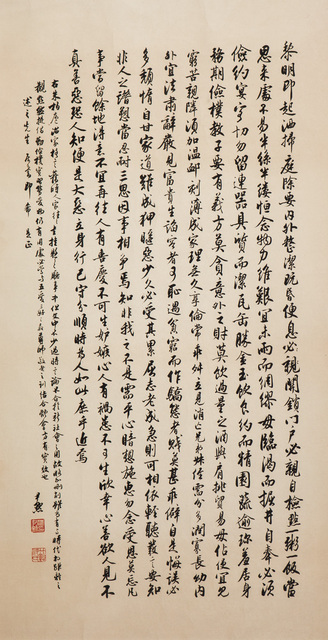 黎明即起洒掃庭除要内外整潔既昏便息必親關鎖門戶必親自檢點粥飯當
思來處不易半絲半縷恒念物力維艱宜未雨而綢繆毋臨渴而掘井自奉必須
儉約宴客切勿留連器具質而潔瓦缶勝金玉飲食約而精園蔬逾珍羞居身
務期儉樸教子要有義方莫貪意外之財莫飲過量之酒與肩挑貿易毋佔便宜見
窮苦親鄰須加溫卹刻薄成家理無久享倫常乖舛立見消亡兄弟叔姪須分多潤寡長幼内
外宜法肅辭嚴見富貴生諂容者可恥遇貧窮而作驕態者賤莫甚乖僻自是悔誤必
多頹惰自甘家道難成狎暱惡少久必受其累屈志老成急則可相依輕聽發言安知
非人之譖愬當忍耐三思因事相爭焉知非我之不是需平心暗想施惠勿念受恩莫忘凡
事當留餘地得意不宜再往人有喜慶不可生妒嫉心人有禍患不可生欣幸心善欲人見不
真善惡恐人知便是大惡立身行己守分順時為人如此庶乎近焉
右朱柏廬治家格言